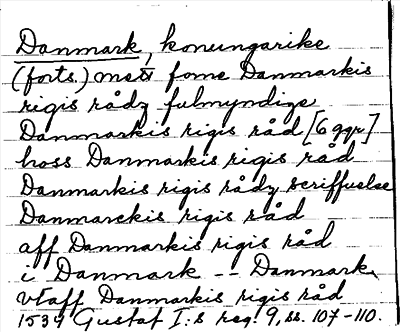 Danmark, konungarike
(forts.) mett fome Danmarkis
rigis rådz fulmyndige
Danmarkis rigis råd [6 ggr]
hoss Danmarkis rigis råd
Danmarkis rigis rådz scriffuelse
Danmarckis rigis råd
aff Danmarkis rigis råd
i Danmark -- Danmark
vtaff Danmarkis rigis råd
1534 Gustaf I:s reg. 9, ss. 107-110.